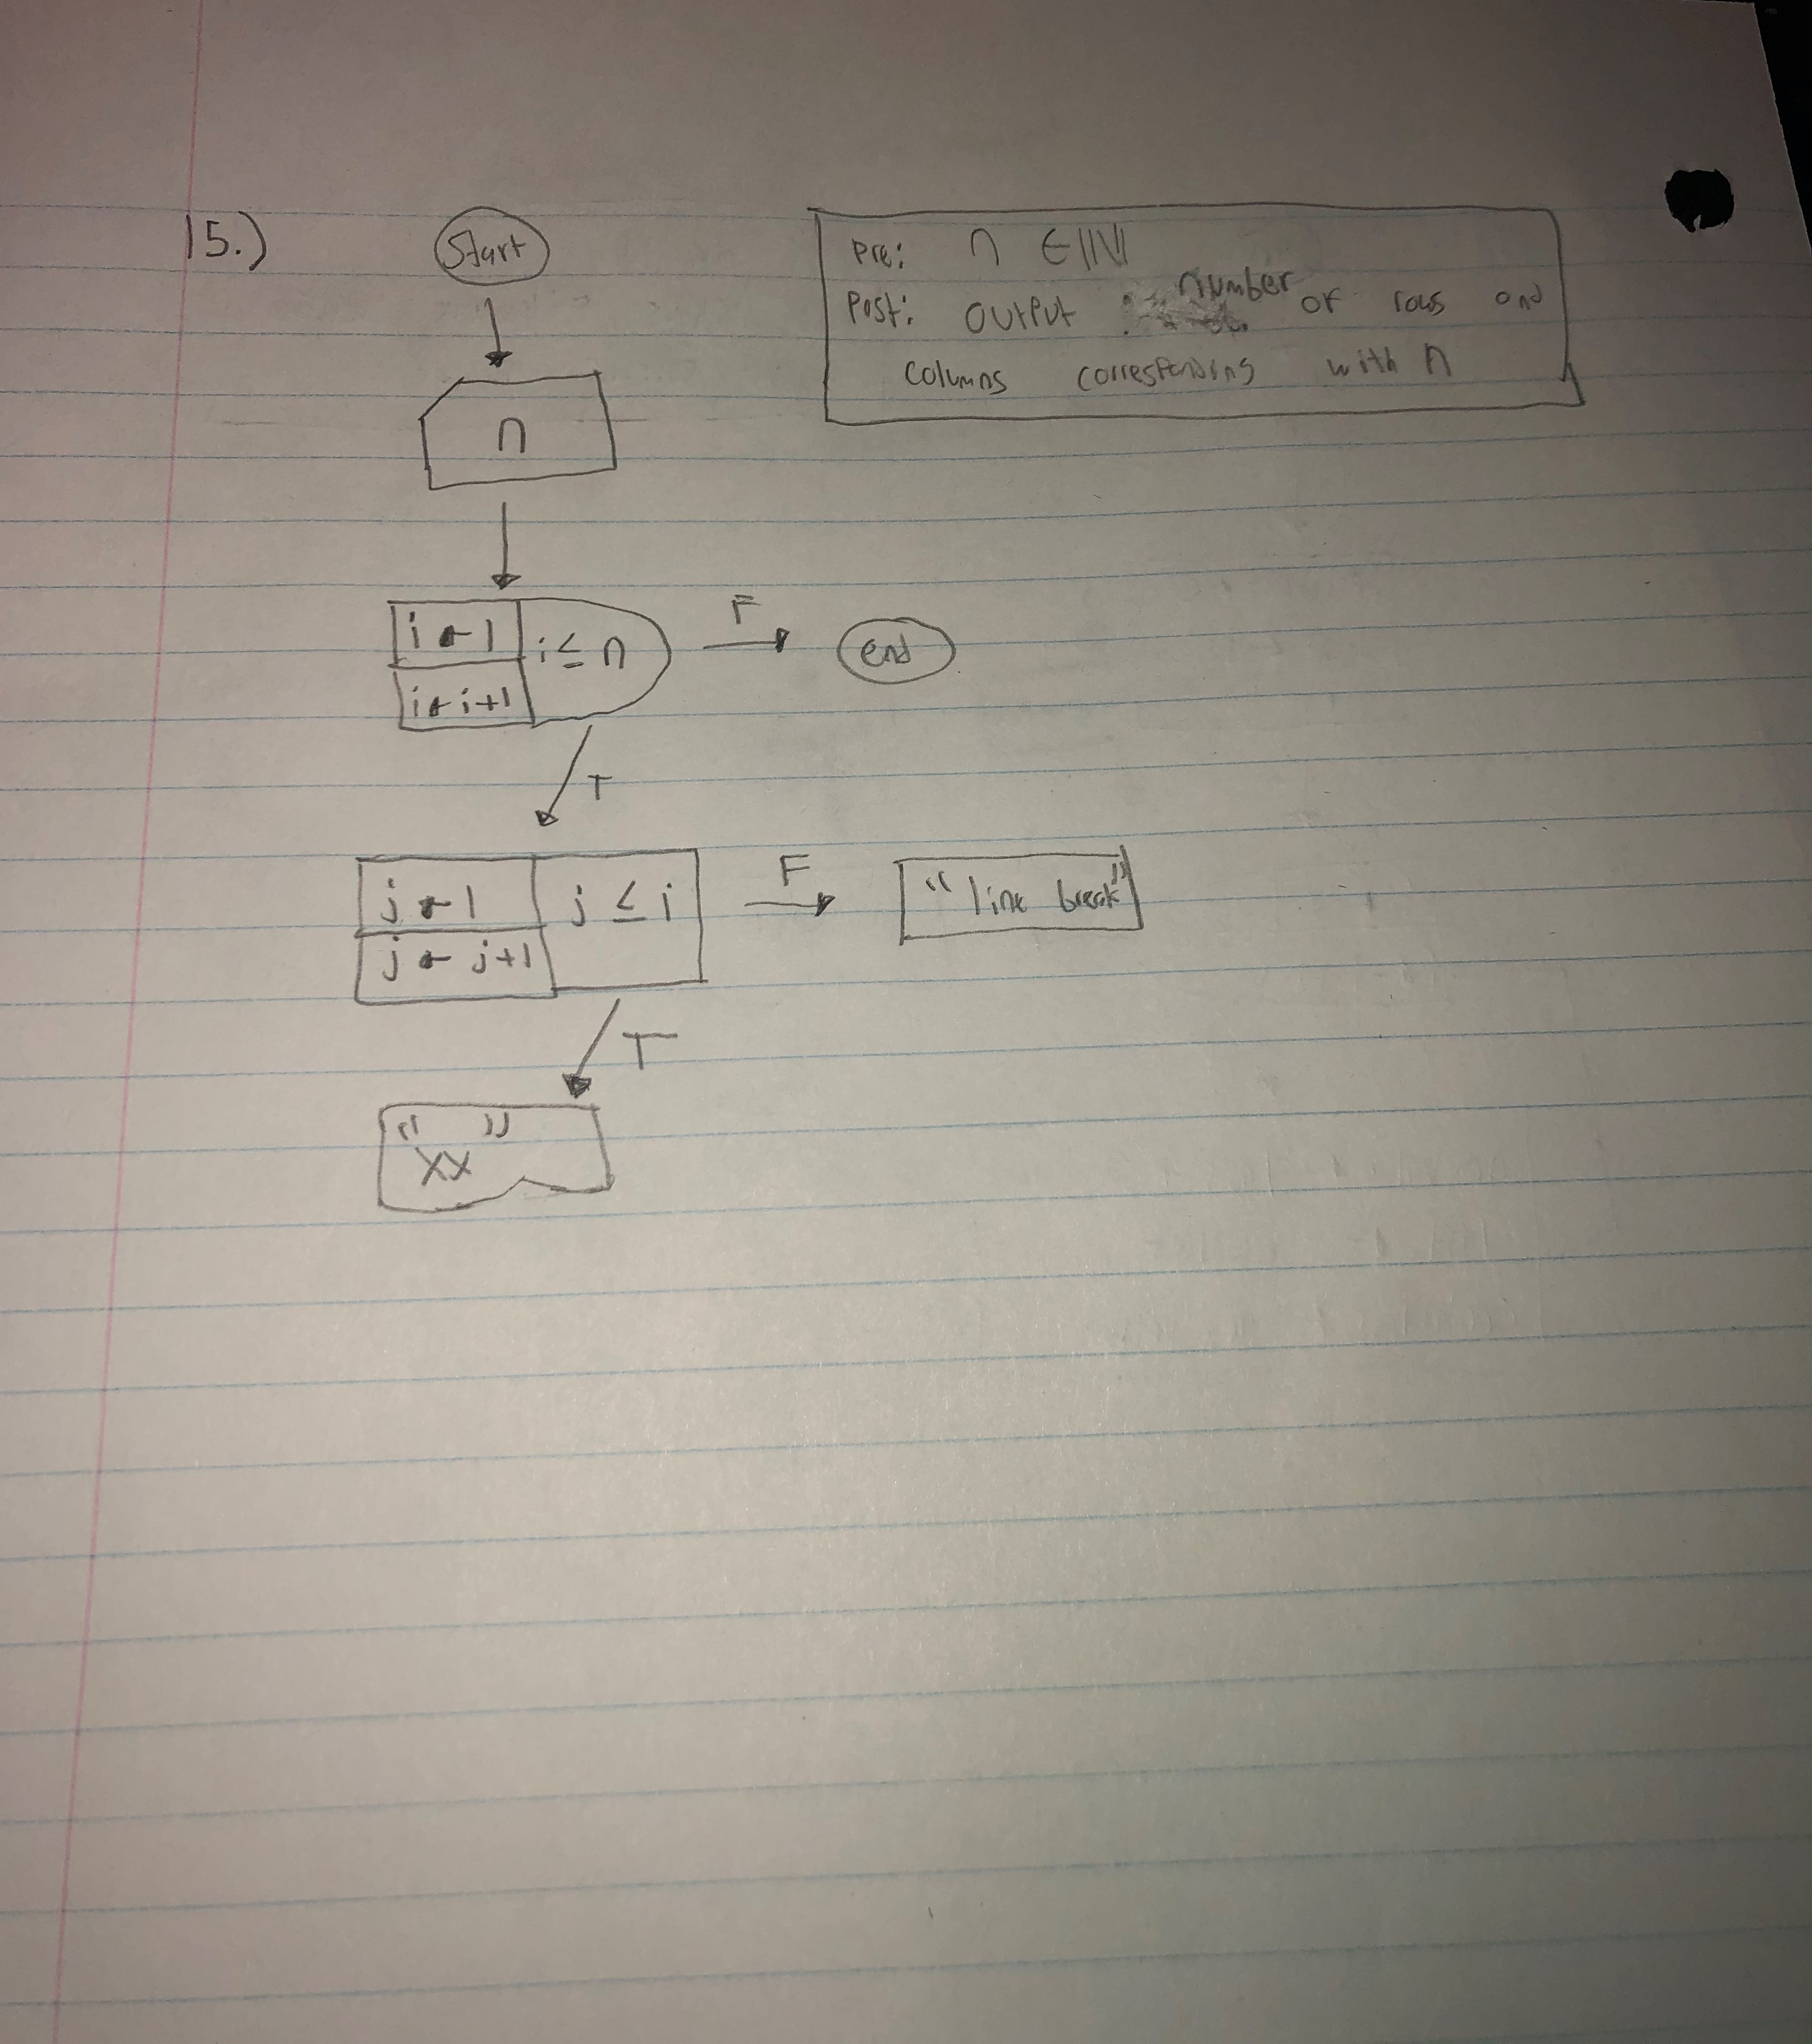 15.)
Start
Pre: n ∈ ℕ
Post: output number of rows and
columns corresponding with n
n
i ← 1
i ≤ n
F
end
i ← i+1
T
j ← 1
j ≤ i
F
"line break"
j ← j+1
T
"XX"